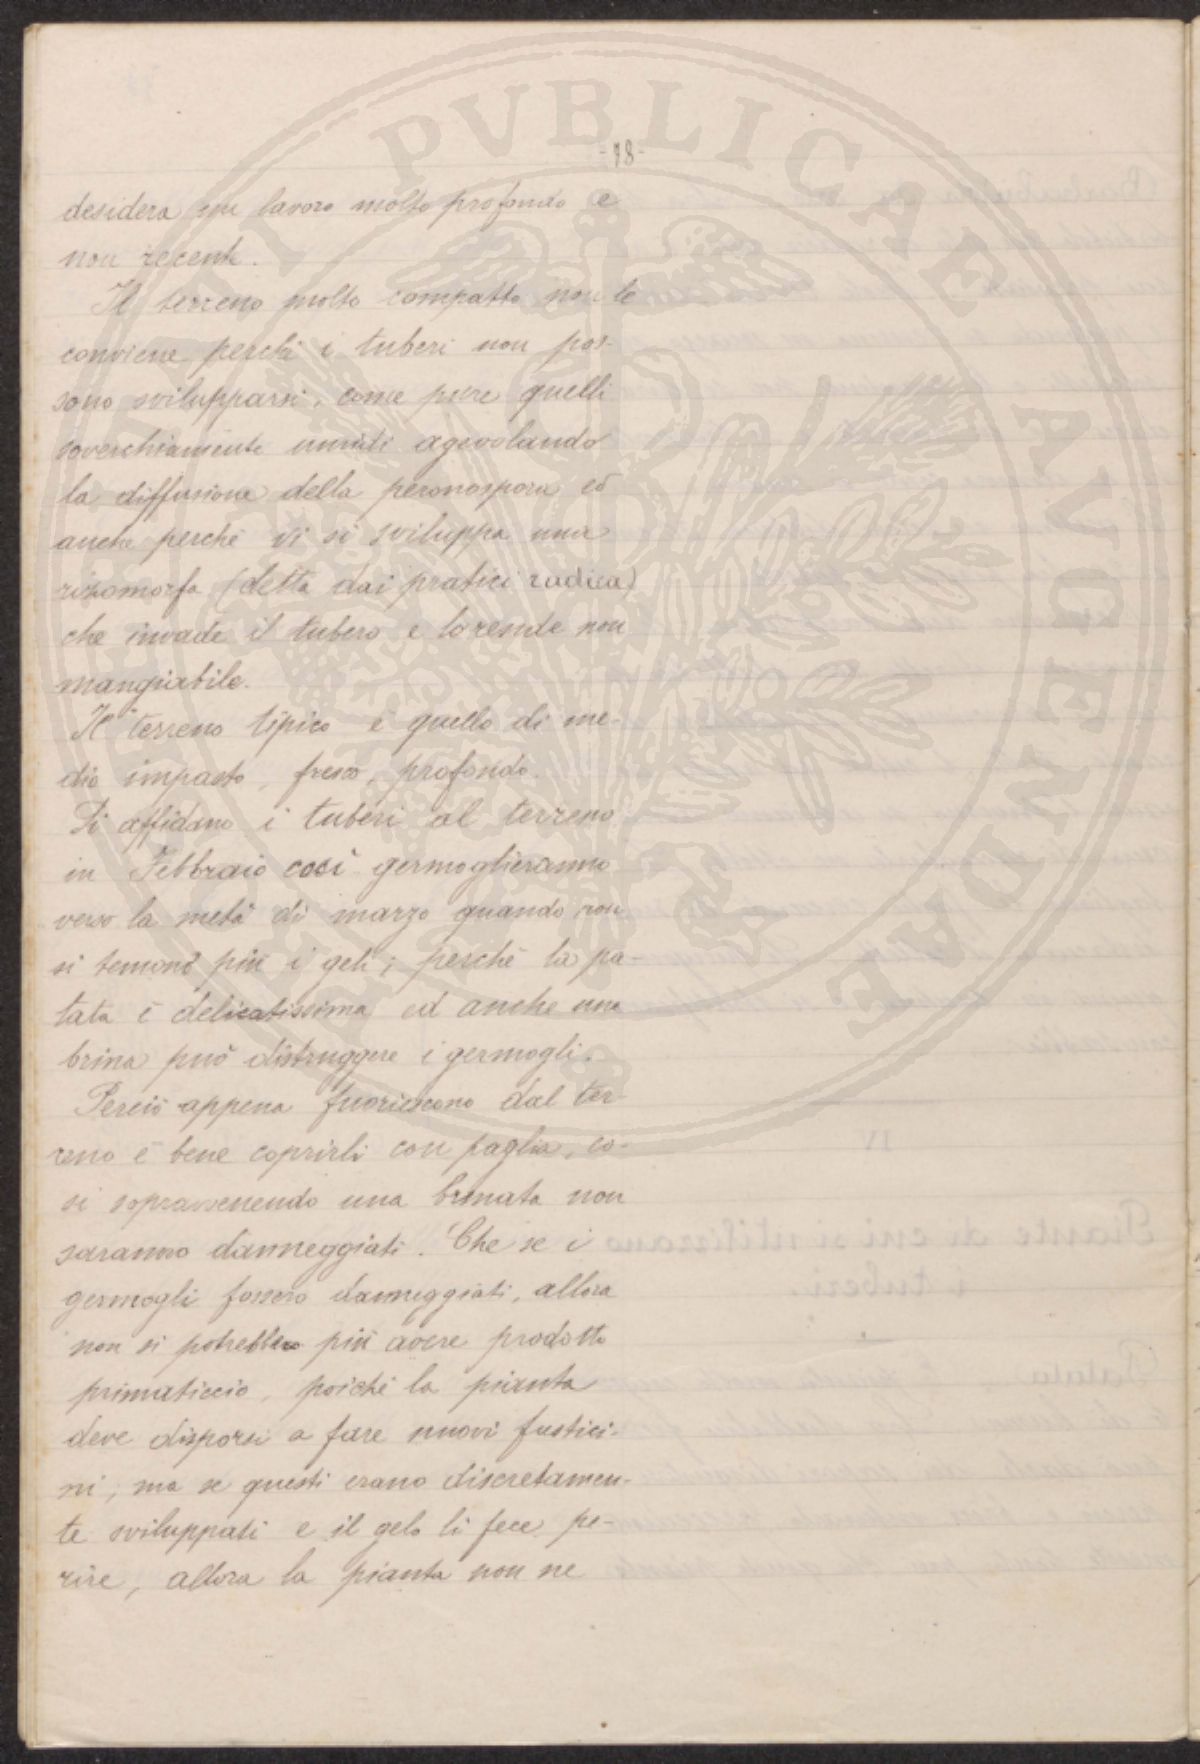 -18-
desidera un lavoro molto profondo e
non recente.
Il terreno molto compatto non le
conviene perchè i tuberi non pos-
sono svilupparsi, come pure quelli
soverchiamente umidi agevolando
la diffusione della peronospora ed
anche perchè vi si sviluppa una
rizomorfa (detta dai pratici radica)
che invade il tubero e lo rende non
mangiabile.
Il terreno tipico è quello di me-
dio impasto, fresco, profondo.
Si affidano i tuberi al terreno
in Febbraio così germoglieranno
verso la metà di marzo quando non
si temono più i geli; perchè la pa-
tata è delicatissima ed anche una
brina può distruggere i germogli.
Perciò appena fuoriescono dal ter-
reno è bene coprirli con paglia, co-
sì sopravvenendo una brinata non
saranno danneggiati. Che se i
germogli fossero danneggiati, allora
non si potrebbero più avere prodotto
primaticcio, poichè la pianta
deve disporsi a fare nuovi fustici-
ni; ma se questi erano discretamen-
te sviluppati e il gelo li fece pe-
rire, allora la pianta non ne
PVBLICAE AVGENDAE